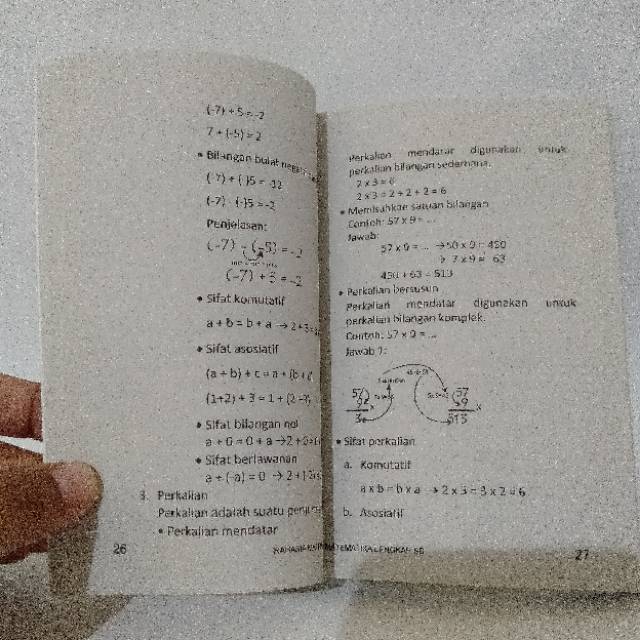 (-7) + 5 = -2
7 + (-5) = 2
• Bilangan bulat
(-7) + (-)5 = -12
(-7) - (-)5 = -2
Penjelasan:
(-7) - (-5) = -2
(-7) + 5 = -2
• Sifat komutatif
a + b = b + a → 2 + 3 =
• Sifat asosiatif
(a + b) + c = a + (b +
(1+2) + 3 = 1 + (2
• Sifat bilangan nol
a + 0 = 0 + a → 2 + 0 =
• Sifat berlawanan
a + (-a) = 0 → 2 +
3. Perkalian
Perkalian adalah suatu
• Perkalian mendatar
26
Perkalian mendatar digunakan untuk
perkalian bilangan sederhana.
2 x 3 = 6
2 x 3 = 2 + 2 + 2 = 6
• Memisahkan satuan bilangan
Contoh: 57 x 9 = ...
Jawab:
57 x 9 = ... → 50 x 9 = 450
→ 7 x 9 = 63
450 + 63 = 513
• Perkalian bersusun
Perkalian mendatar digunakan untuk
perkalian bilangan komplek.
Contoh: 57 x 9 = ...
Jawab 1:
57 57
9 x 9 x
3 513
• Sifat perkalian
a. Komutatif
a x b = b x a → 2 x 3 = 3 x 2 = 6
b. Asosiatif
27